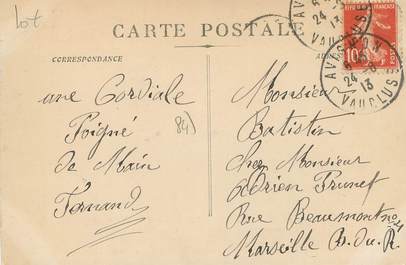 Lot
CARTE POSTALE
CORRESPONDANCE
une Cordiale
Poigné
de Main
Fernand
84)
Monsieur
Batistin
chez Monsieur
Adrien Prunet
Rue Beaumont no 1
Marseille B. du R.
24 -
13
VAUCLUSE
24 -
13
VAUCLUSE
10